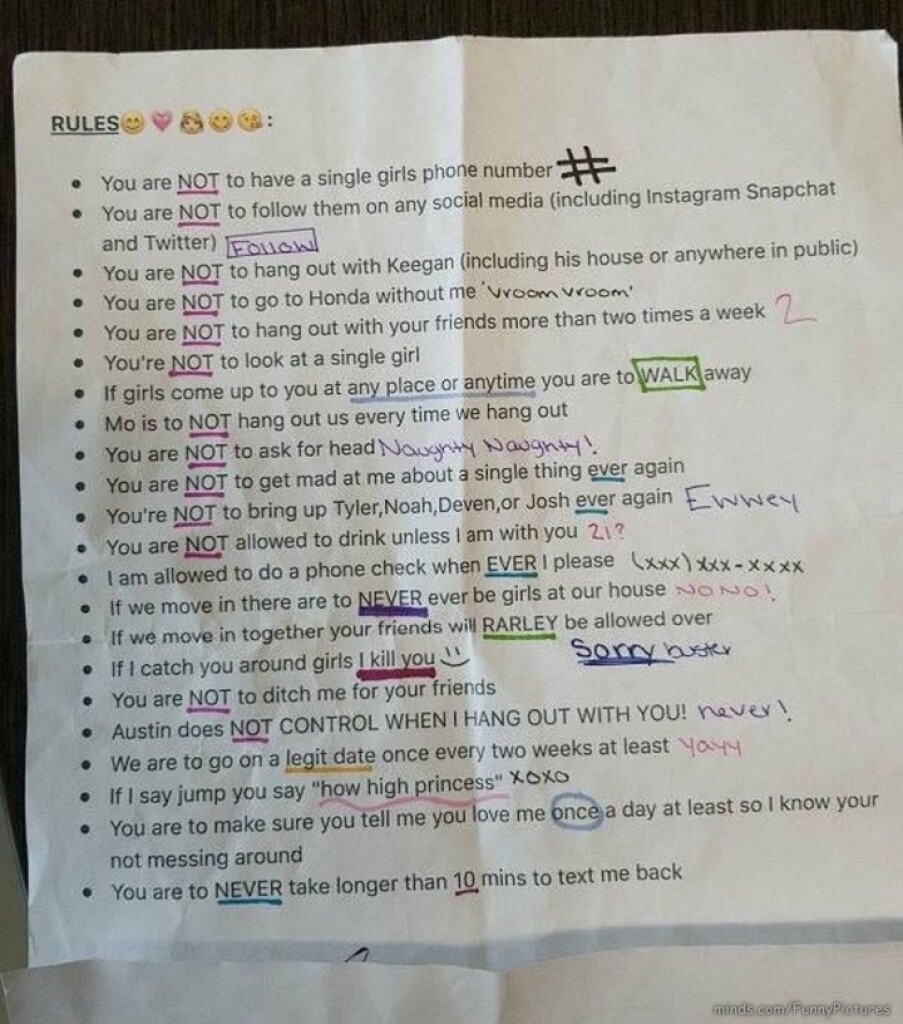 RULES😊💗👸😋😘:
• You are NOT to have a single girls phone number #
• You are NOT to follow them on any social media (including Instagram Snapchat
and Twitter) Follow
• You are NOT to hang out with Keegan (including his house or anywhere in public)
• You are NOT to go to Honda without me 'vroom vroom'
• You are NOT to hang out with your friends more than two times a week 2
• You're NOT to look at a single girl
• If girls come up to you at any place or anytime you are to WALK away
• Mo is to NOT hang out us every time we hang out
• You are NOT to ask for head Naughty Naughty!
• You are NOT to get mad at me about a single thing ever again
• You're NOT to bring up Tyler,Noah,Deven,or Josh ever again Ewwey
• You are NOT allowed to drink unless I am with you 21?
• I am allowed to do a phone check when EVER I please (xxx)xxx-xxxx
• If we move in there are to NEVER ever be girls at our house NO NO!
• If we move in together your friends will RARLEY be allowed over
Sorry buster
• If I catch you around girls I kill you
• You are NOT to ditch me for your friends
• Austin does NOT CONTROL WHEN I HANG OUT WITH YOU! never!
• We are to go on a legit date once every two weeks at least Yayy
• If I say jump you say "how high princess" xoxo
• You are to make sure you tell me you love me once a day at least so I know your
not messing around
• You are to NEVER take longer than 10 mins to text me back
minds.com/FunnyPictures